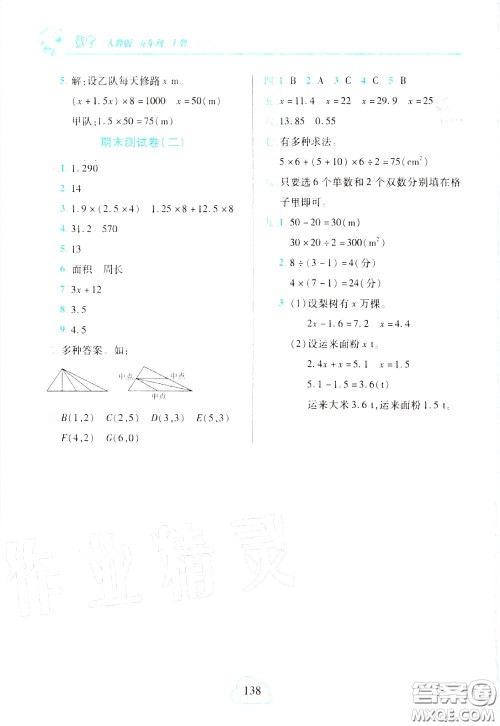 数学 人教版 五年级 上册
5. 解:设乙队每天修路 x m.
(x+1.5x)×8=1000 x=50
甲队:1.5×50=75(m)
期末测试卷(二)
一 1 1.290
2 14
3 1.9×(2.5×4) 1.25×8+12.5×8
4 31.2 570
5 13
6 面积 周长
7 3x+12
8 3.5
9 4.5
多种答案. 如:
中点 中点
中点
B(1,2) C(2,5) D(3,3) E(5,3)
F(4,2) G(6,0)
四 1 B 2 A 3 C 4 C 5 B
五 x=11.4 x=22 x=29.9 x=25
六 13.85 0.55
七 有多种求法.
5×6+(5+10)×6÷2=75(cm²)
八 只要选6个单数和2个双数分别填在格
子里即可.
九 1 50-20=30(m)
30×20÷2=300(m²)
2 8÷(3-1)=4(分)
4×(7-1)=24(分)
3 (1)设梨树有 x 万棵.
2x-1.6=7.2 x=4.4
(2)设运来面粉 x t.
2.4x+x=5.1 x=1.5
5.1-1.5=3.6(t)
运来大米 3.6 t,运来面粉 1.5 t.
作业精灵
138
答案圈
MXQE.COM